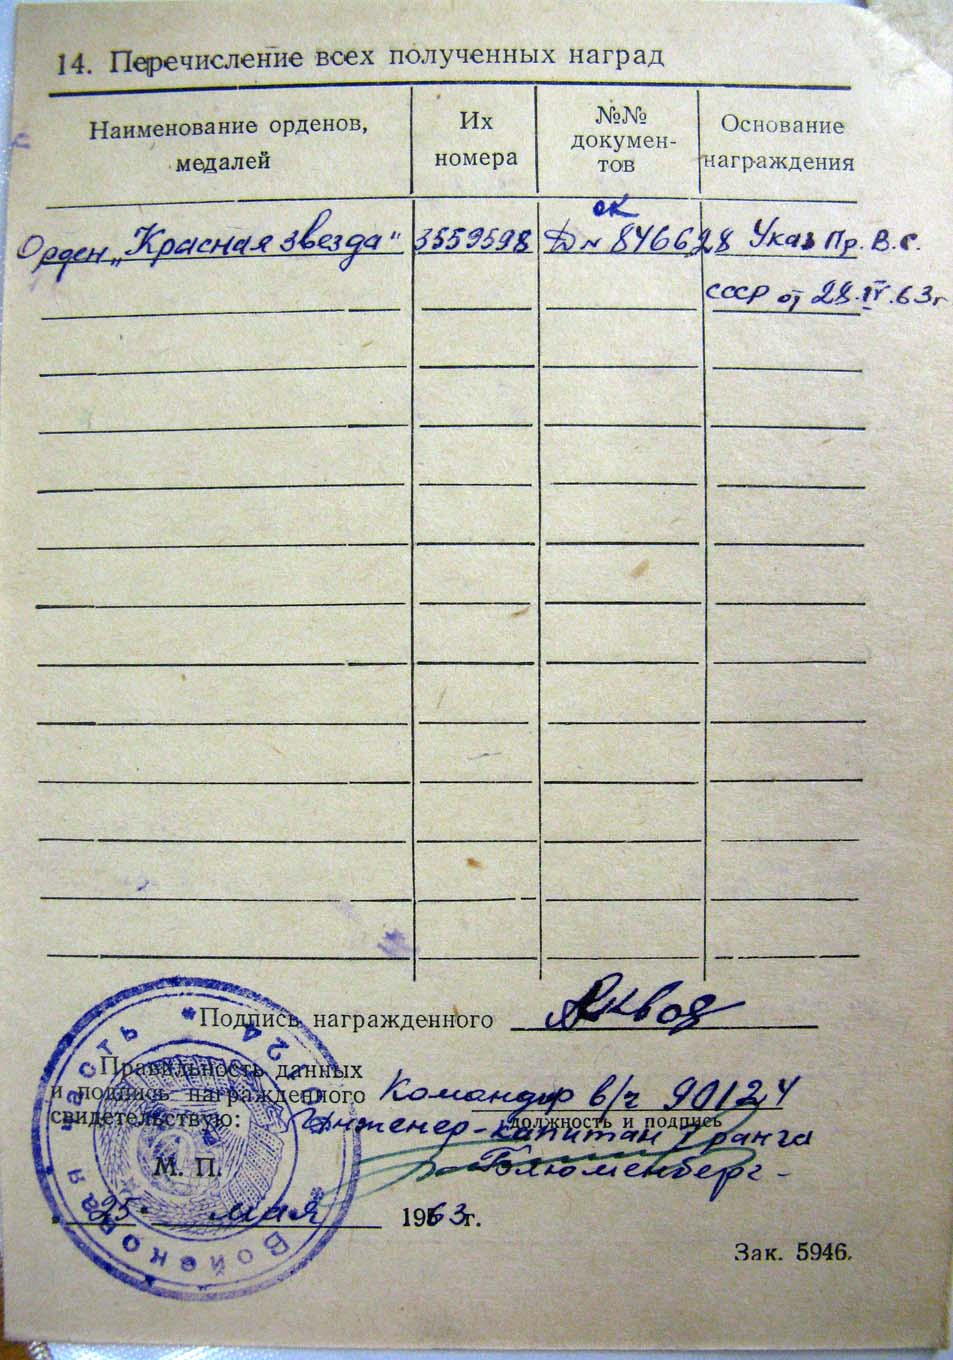 14. Перечисление всех полученных наград
Наименование орденов, медалей
Их номера
№№ докумен-тов
Основание награждения
Орден „Красная звезда" 3559598 Д № 846628 Указ Пр. В. С.
ск
СССР от 28.IV.63г
Подпись награжденного
Правильность данных
и подпись награжденного Командир в/ч 90124
свидетельствую: Инженер-капитан 1 ранга
должность и подпись
М. П. Блюменберг
25 мая 1963 г.
Войсковая часть
Зак. 5946.